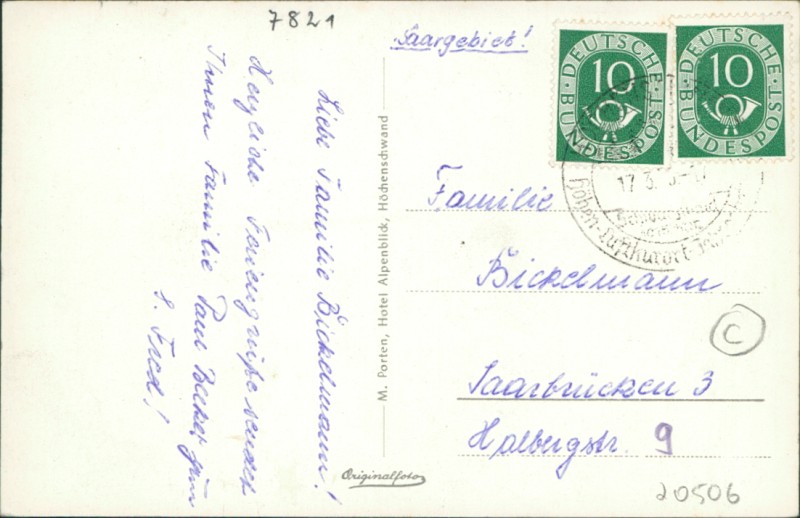 7821
Saargebiet!
Liebe Familie Bickelmann!
Herzliche Feriengrüße sendet
Ihnen Familie Paul Becker
S. Fred!
M. Porten, Hotel Alpenblick, Höchenschwand
Originalfoto
DEUTSCHE BUNDESPOST
10
DEUTSCHE BUNDESPOST
10
17.3.
Höhen-Luftkurort
Familie
Bickelmann
C
Saarbrücken 3
Halbergstr. 9
20506